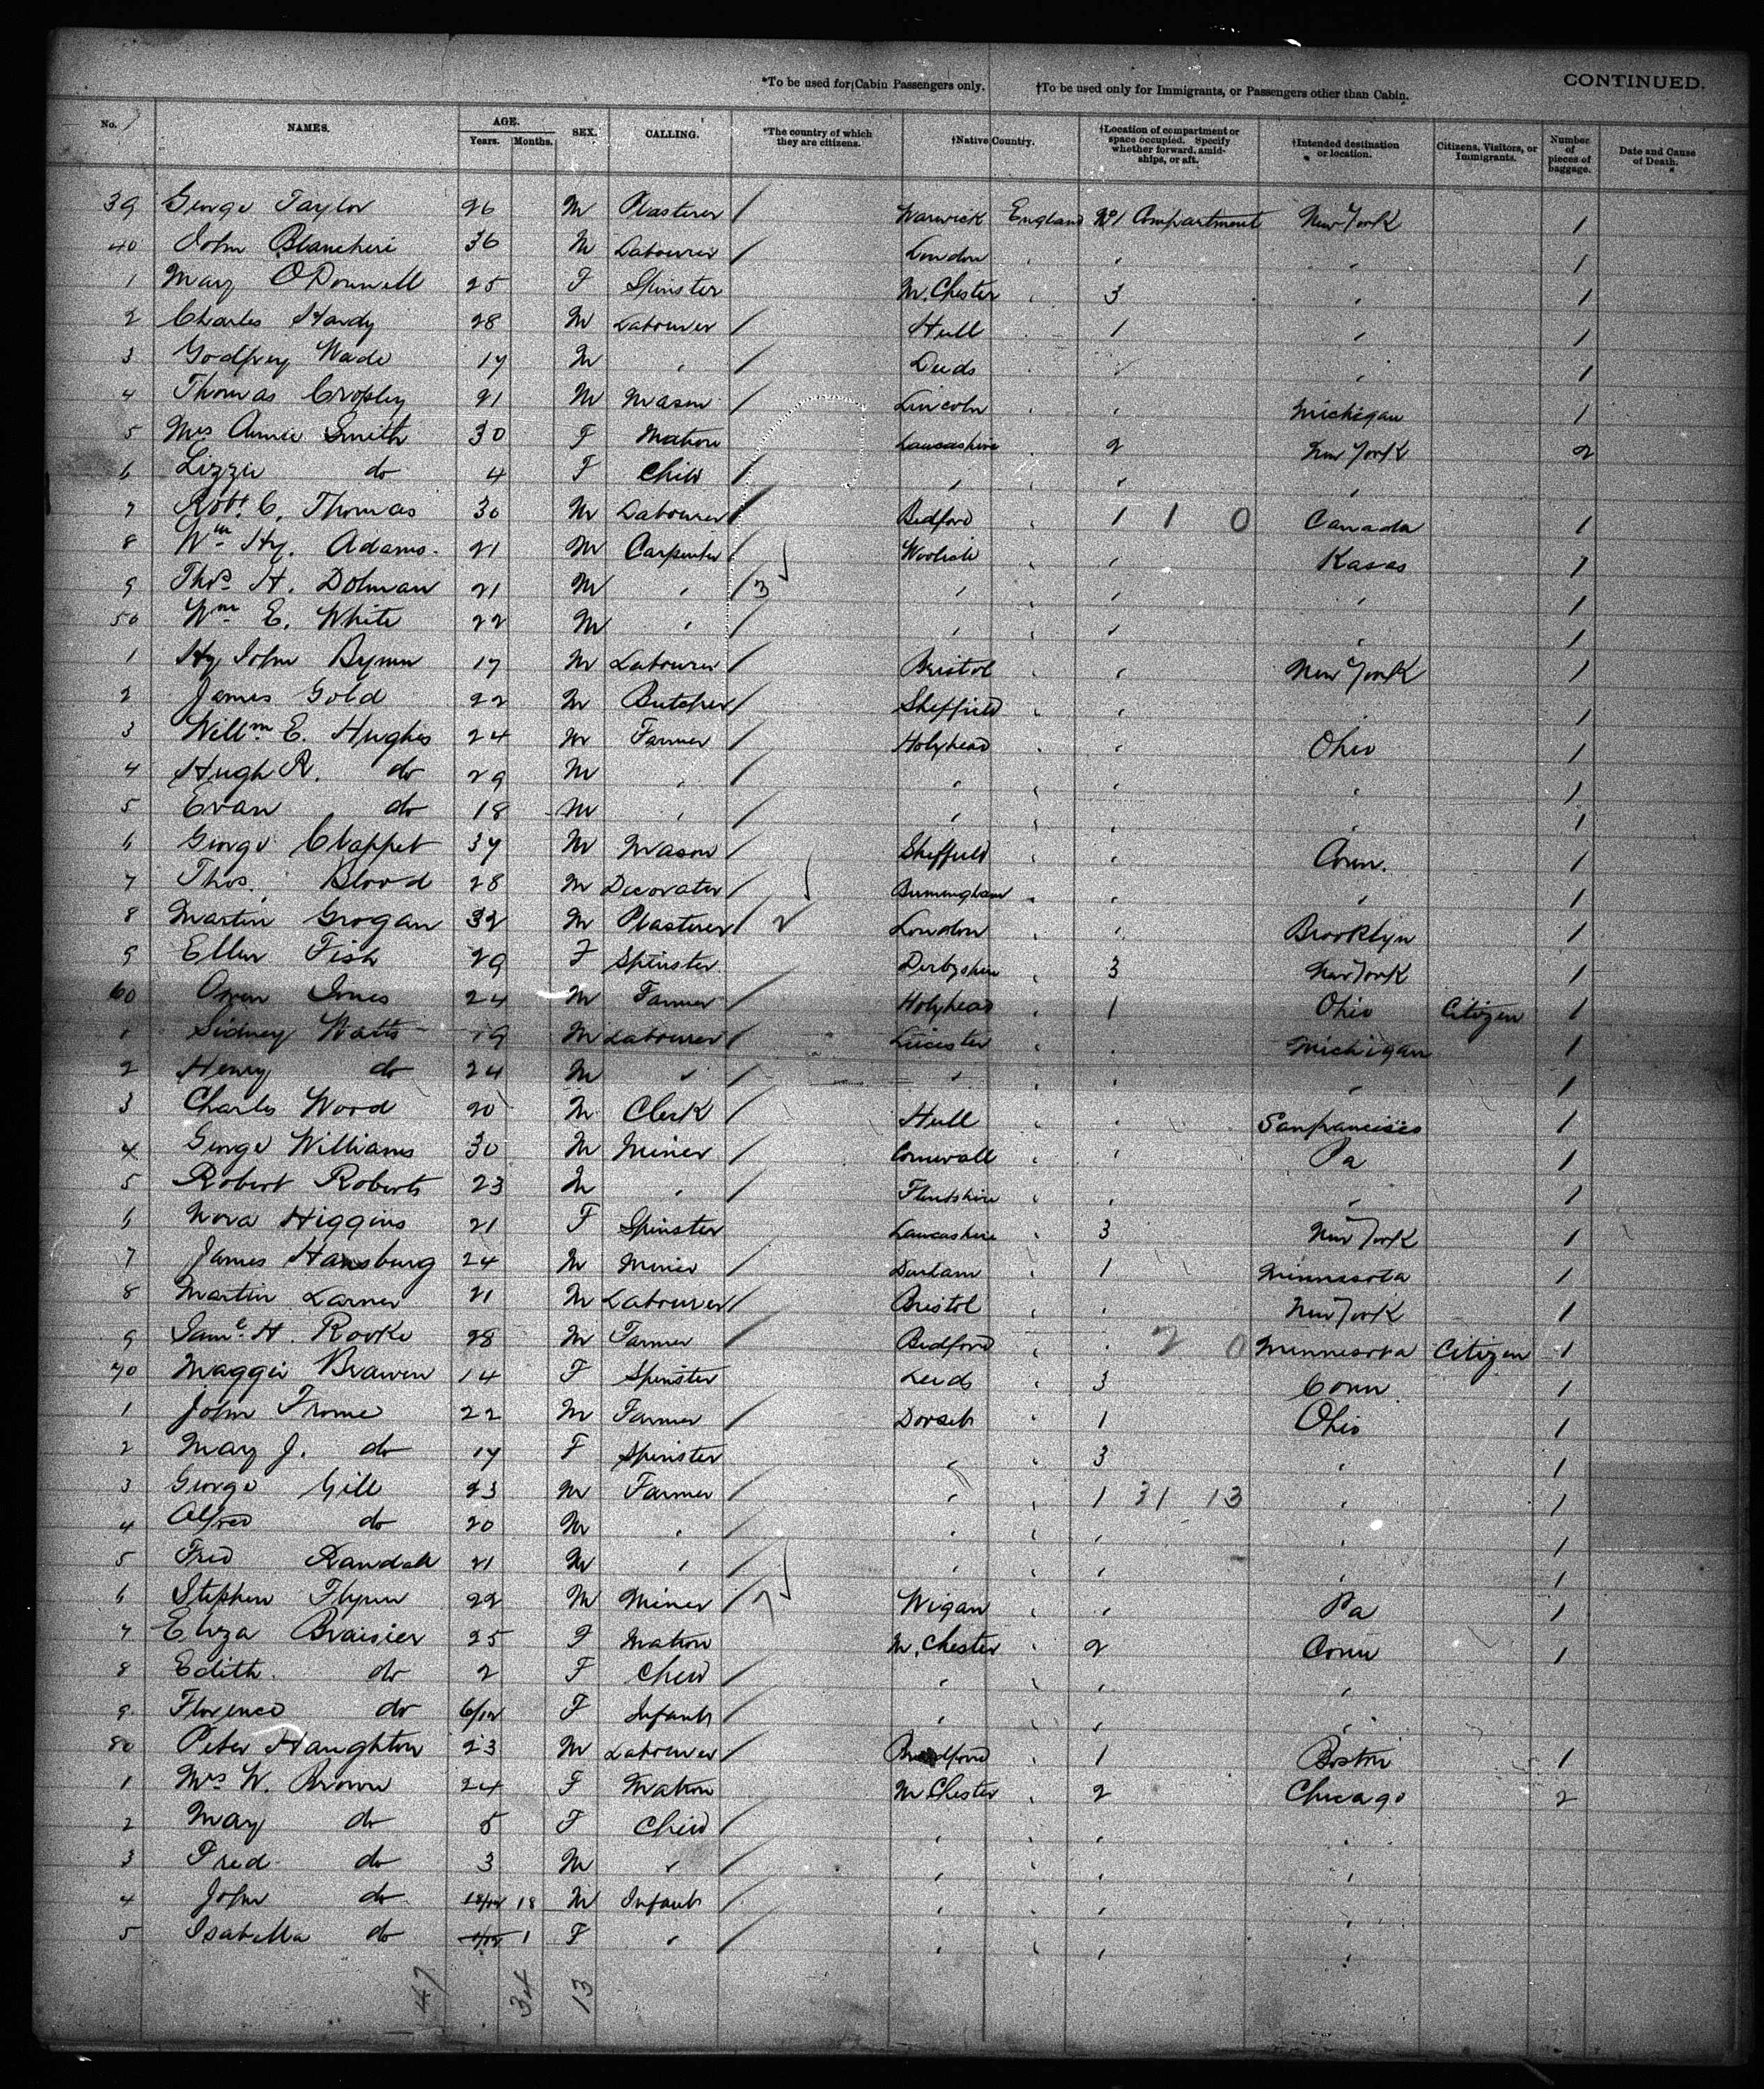 *To be used for Cabin Passengers only. †To be used only for Immigrants, or Passengers other than Cabin. CONTINUED.
No. NAMES. AGE. Years. Months. SEX. CALLING. *The country of which they are citizens. †Native Country. †Location of compartment or space occupied. Specify whether forward, amidships, or aft. †Intended destination or location. Citizens, Visitors, or Immigrants. Number of pieces of baggage. Date and Cause of Death.
39 George Taylor 26 M Plasterer / Warwick England No 1 Compartment New York 1
40 John Blancheri 36 M Labourer / London " " " 1
1 Mary O'Donnell 25 F Spinster M.Chester " 3 " 1
2 Charles Hardy 28 M Labourer / Hull " 1 " 1
3 Godfrey Wade 17 M " / Leeds " " " 1
4 Thomas Cropley 21 M Mason / Lincoln " " Michigan 1
5 Mrs Annie Smith 30 F Matron Lancashire " 2 New York 2
6 Lizzie do 4 F Child / " " " "
7 Robt. C. Thomas 30 M Labourer / Bedford " 1 1 0 Canada 1
8 Wm Hy. Adams 21 M Carpenter / Woolwich " " Kasas 1
9 Thos. H. Dolman 21 M " / 3 " " " " 1
50 Wm E. White 22 M " / " " " " 1
1 Hy John Bynn 17 M Labourer / Bristol " " New York 1
2 James Gold 22 M Butcher / Sheffield " " " 1
3 Willm E. Hughes 24 M Farmer / Holyhead " " Ohio 1
4 Hugh R. do 29 M " / " " " " 1
5 Evan do 18 M " / " " " " 1
6 George Chappet 37 M Mason / Sheffield " " Conn. 1
7 Thos. Blood 28 M Decorater / Birmingham " " " 1
8 Martin Grogan 32 M Plasterer / 2 London " " Brooklyn 1
9 Ellen Fish 29 F Spinster Derbyshire " 3 New York 1
60 Owen Jones 24 M Farmer / Holyhead " 1 Ohio Citizen 1
1 Sidney Watts 19 M Labourer / Leicester " " Michigan 1
2 Henry do 24 M " / " " " " 1
3 Charles Wood 20 M Clerk / Hull " " Sanfrancisco 1
4 George Williams 30 M Miner / Cornwall " " Pa 1
5 Robert Roberts 23 M " / Flintshire " " " 1
6 Nora Higgins 21 F Spinster Lancashire " 3 New York 1
7 James Hansburg 24 M Miner / Durham " 1 Minnesota 1
8 Martin Larner 21 M Labourer / Bristol " " New York 1
9 Saml. H. Rooke 28 M Farmer / Bedford " " 2 0 Minnesota Citizen 1
70 Maggie Brawen 14 F Spinster Leeds " 3 Conn 1
1 John Frome 22 M Farmer / Dorset " 1 Ohio 1
2 May J. do 17 F Spinster " " 3 " 1
3 George Gill 23 M Farmer / " " 1 31 13 " 1
4 Alfred do 20 M " / " " " " 1
5 Fred Randall 21 M " / " " " " 1
6 Stephen Flynn 22 M Miner / 7 Wigan " " Pa 1
7 Eliza Braisier 25 F Matron M.Chester " 2 Conn 1
8 Edith do 2 F Child / " " " "
9 Florence do 6/12 F Infant / " " " "
80 Peter Haughton 23 M Labourer / Bradford " 1 Boston 1
1 Mrs W. Brown 24 F Matron M Chester " 2 Chicago 2
2 May do 5 F Child / " " " "
3 Fred do 3 M " / " " " "
4 John do 18/12 18 M Infant / " " " "
5 Isabella do 1/12 1 F " / " " " "
47 34 13